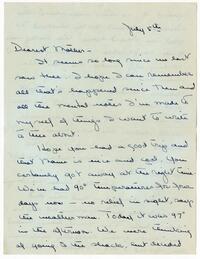 July 8th
Dearest Mother -
It seems so long since we last
saw thee. I hope I can remember
all that's happened since then and
all the mental notes I've made to
myself of things I want to write
to thee about.
I hope you had a good trip and
that Maine is nice and cool. You
certainly got away at the right time.
We've had 90° temperatures for four
days now - no relief in sight, says
the weather man. Today it was 97°
in the afternoon. We were thinking
of going to the shack, but decided